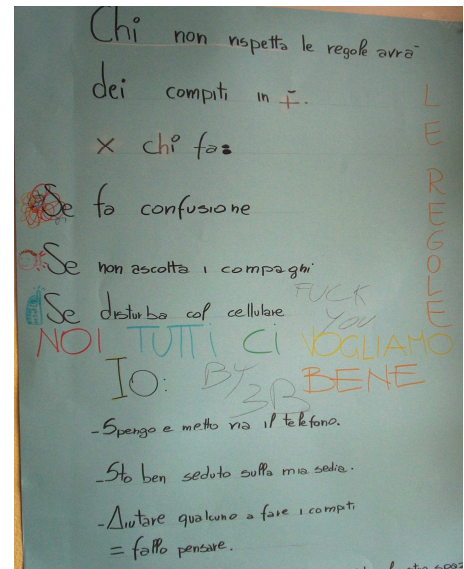 Chi non rispetta le regole avra
dei compiti in +.
x chi fa:
Se fa confusione
Se non ascolta i compagni
Se disturba col cellulare
FUCK
YOU
LE REGOLE
NOI TUTTI CI VOGLIAMO
BENE
BY
3B
IO:
-Spengo e metto via il telefono.
-Sto ben seduto sulla mia sedia.
-Aiutare qualcuno a fare i compiti
= fallo pensare.